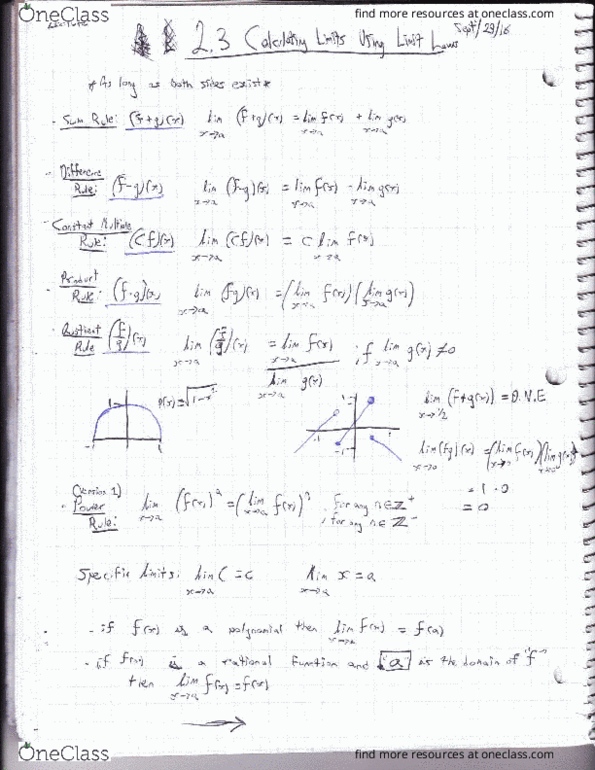 OneClass
find more resources at oneclass.com
Lecture
Sept/28/16
2.3 Calculating Limits Using Limit Laws
*As long as both sides exist*
- Sum Rule: (f+g)(x) lim x→a (f+g)(x) = lim x→a f(x) + lim x→a g(x)
- Difference
Rule: (f-g)(x) lim x→a (f-g)(x) = lim x→a f(x) - lim x→a g(x)
- Constant Multiple
Rule: (Cf)(x) lim x→a (Cf)(x) = C lim x→a f(x)
- Product
Rule: (f·g)(x) lim x→a (fg)(x) = (lim x→a f(x))(lim x→a g(x))
- Quotient
Rule (f/g)(x) lim x→a (f/g)(x) = lim x→a f(x) / lim x→a g(x) if lim x→a g(x) ≠0
1 -1 1
f(x)=√1-x²
1 -1 1 -1
lim x→1/2 (f+g(x)) = D.N.E
lim x→0 (fg)(x) = (lim x→0 f(x))(lim x→0 g(x))
= 1·0
= 0
(Version 1)
- Power
Rule: lim x→a (f(x))ⁿ = (lim x→a f(x))ⁿ, for any n∈Z⁺
, for any n∈Z⁻
Specific limits: lim x→a C = c lim x→a x = a
- if f(x) is a polynomial then lim x→a f(x) = f(a)
- if f(x) is a rational function and "a" is the domain of "f"
then lim x→a f(x) = f(x)
→
OneClass
find more resources at oneclass.com